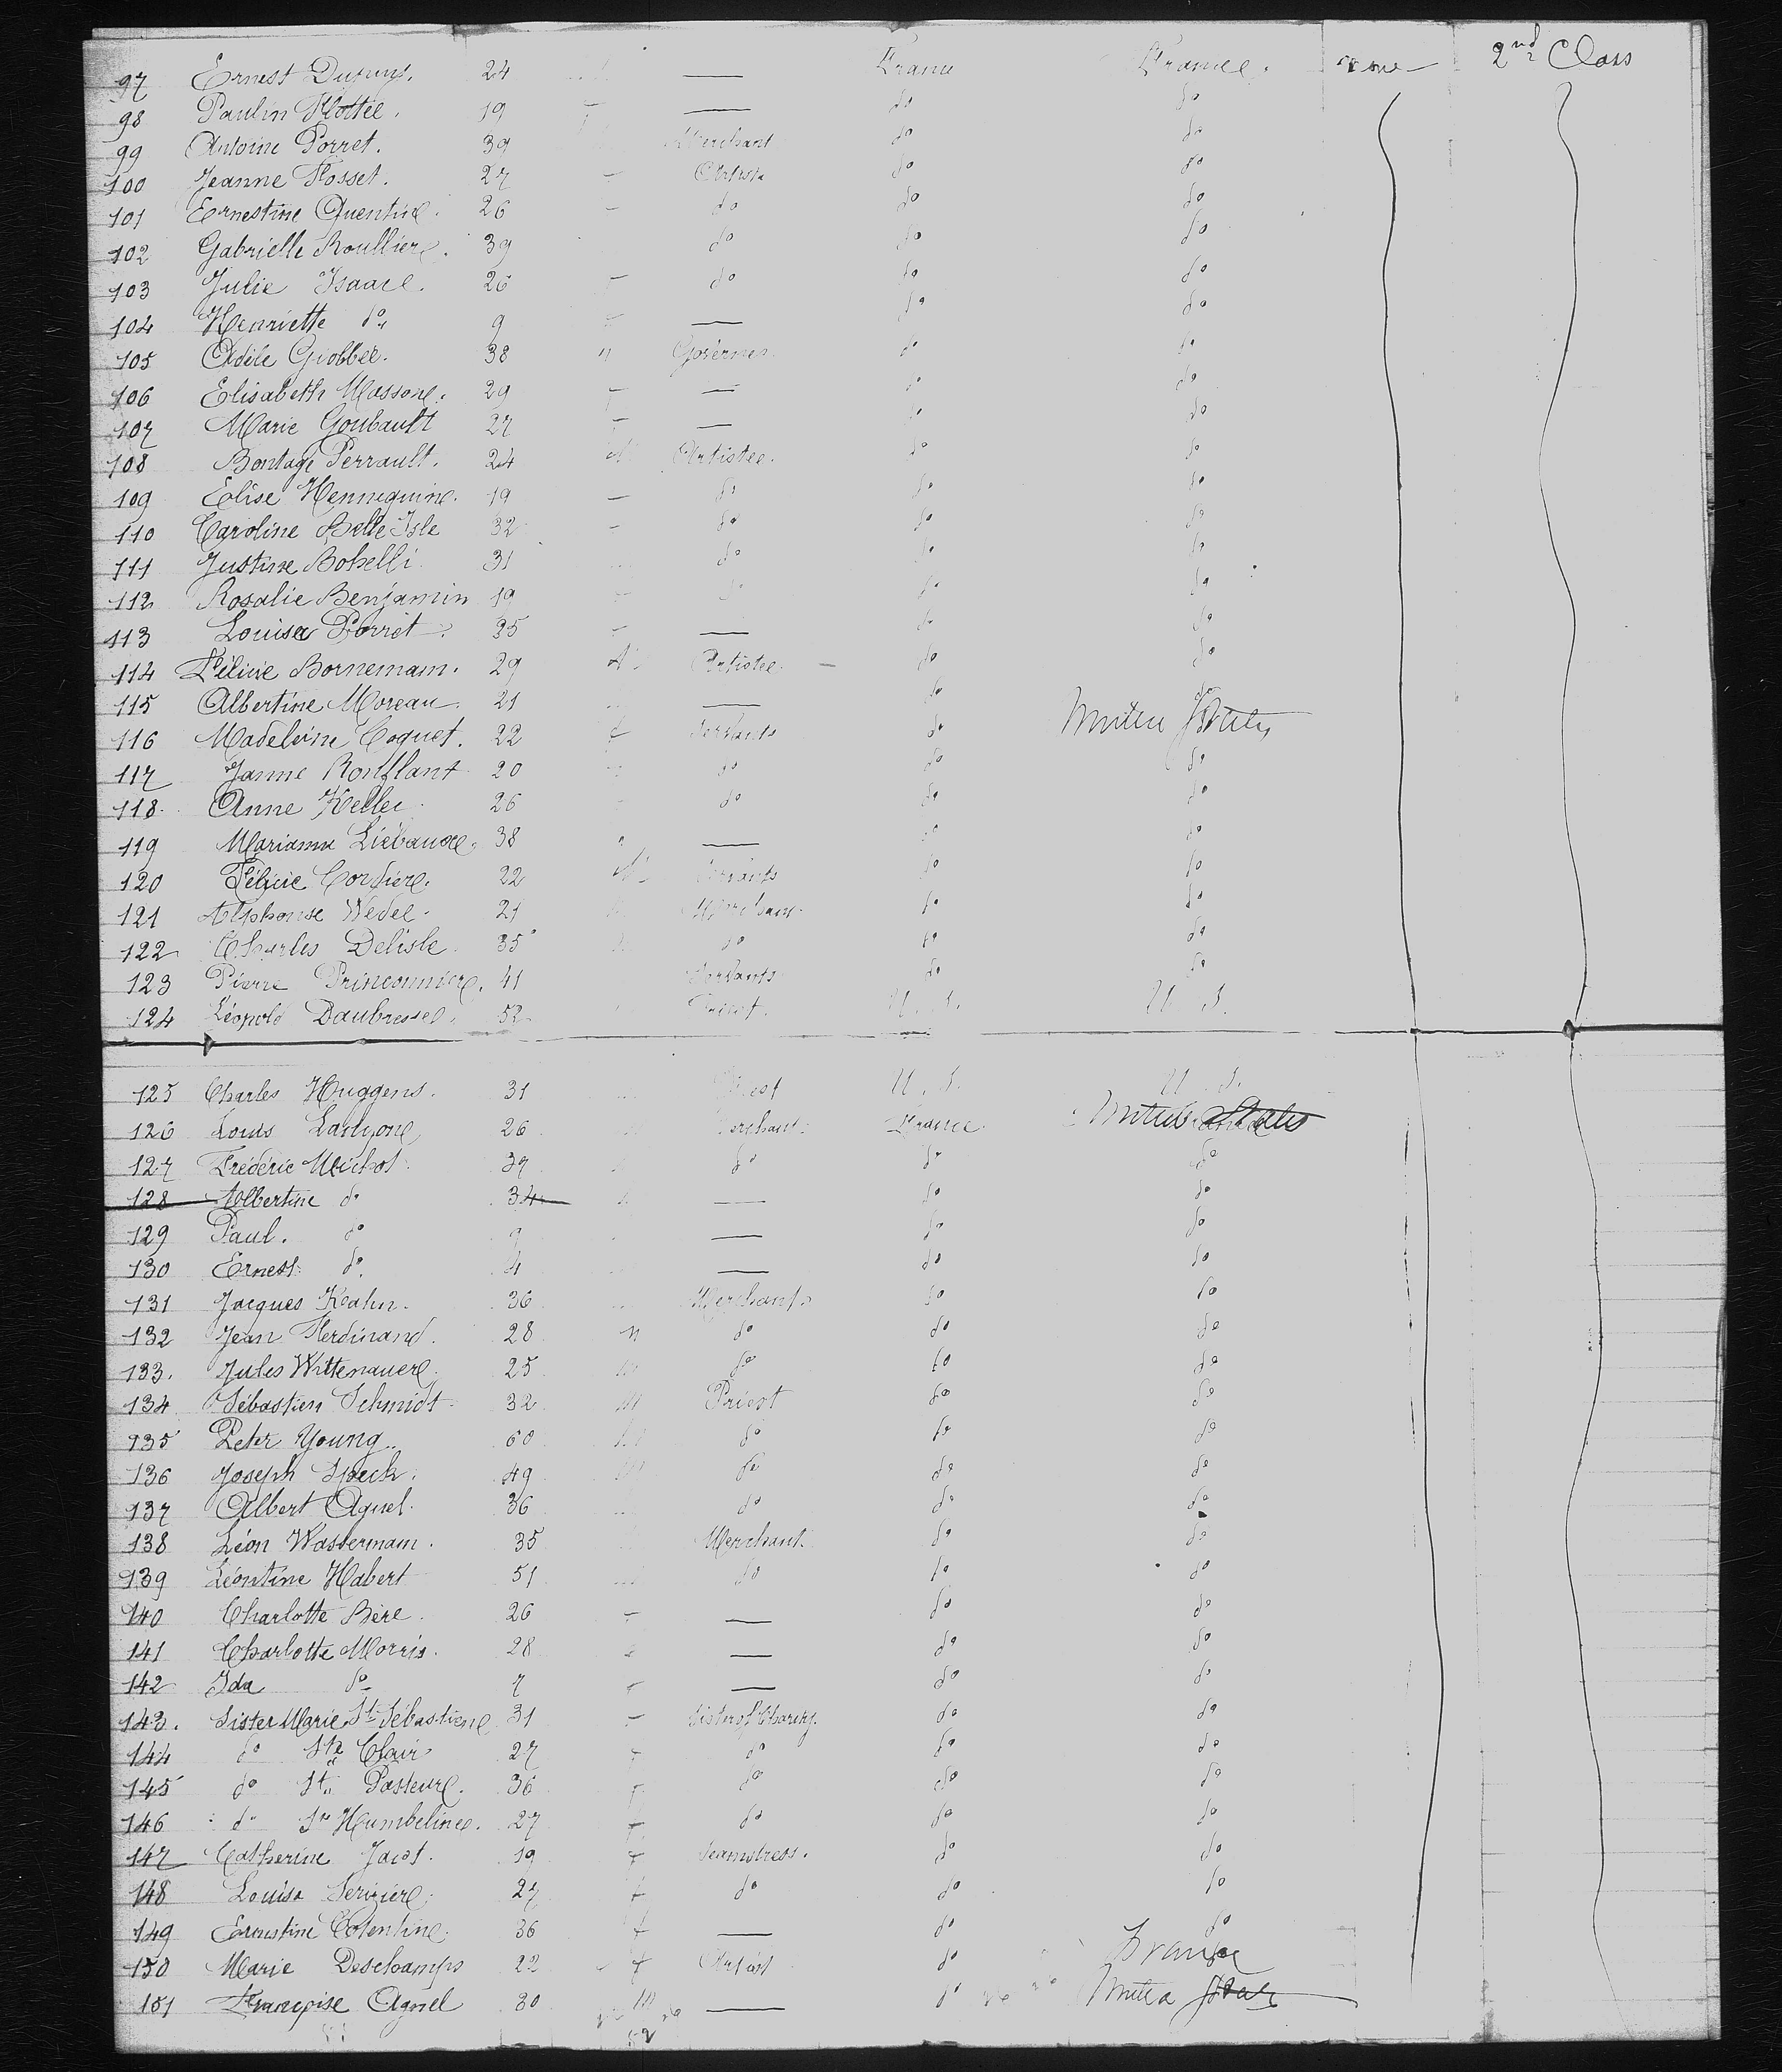 97 Ernest Dupuy. 24 — France France. None 2nd Class
98 Paulin Flottel. 19 — do do
99 Antoine Porret. 39 Merchant do do
100 Jeanne Fosset. 27 Artist do do
101 Ernestine Quentin. 26 do do do
102 Gabrielle Roulliere. 39 do do do
103 Julie Isaac. 26 do do do
104 Henriette do 9 — do do
105 Adèle Grobbel. 38 " Governes. do do
106 Elisabeth Masson. 29 — do do
107 Marie Goubault 27 — do do
108 Perrault. 24 Artiste. do do
109 Elise Hennequin. 19 do do do
110 Caroline Belle Isle 32 do do do
111 Justine Bohelli 31 do do do
112 Rosalie Benjamin 19 do do do
113 Louise Porret. 35 — do do
114 Félicie Bornemam. 29 Artiste — do do
115 Albertine Moreau. 21 — do do
116 Madeleine Coquet. 22 f Servants do United States
117 Janne Ronflant 20 do do do
118 Anne Keller 26 do do do
119 Marianne 38 — do do
120 Félicie Cordier. 22 Servants do do
121 Alphonse Wedel. 21 Merchant do do
122 Charles Delisle 35 do do do
123 Pierre 41 Servants do do
124 Léopold Daubressel. 52 Priest. U. S. U. S.
125 Charles Huggens. 31 Priest U. S. U. S.
126 Louis 26 Merchant France United States
127 Fréderic Michol 37 do do do
128 Albertine do 34 — do do
129 Paul. do 9 — do do
130 Ernest do 4 — do do
131 Jacques Kahn. 36 Merchants do do
132 Jean Ferdinand. 28 do do do
133. Jules Wittenauer. 25 do do do
134 Sébastien Schmidt 32 m Priest do do
135 Peter Young 60 do do do
136 Joseph Speck. 49 m do do do
137 Albert Agnel. 36 do do do
138 Léon Wasserman. 35 Merchant do do
139 Léontine Habert 51 do do do
140 Charlotte Bère. 26 — do do
141 Charlotte Morris. 28 — do do
142 Ida do 7 — do do
143. Sister Marie St Sébastien 31 Sister of Charity. do do
144 do Ste Clair 27 do do do
145 do St. Pasteur. 36 do do do
146 do St Humbeline. 27 do do do
147 Catherine Jacot. 19 f Seamstress. do do
148 Louise Serizier. 27 f do do do
149 Ernestine Cotentin. 36 f — do do
150 Marie Deschamps 22 f Artist do France
151 Françoise Agnel 30 m — do United States